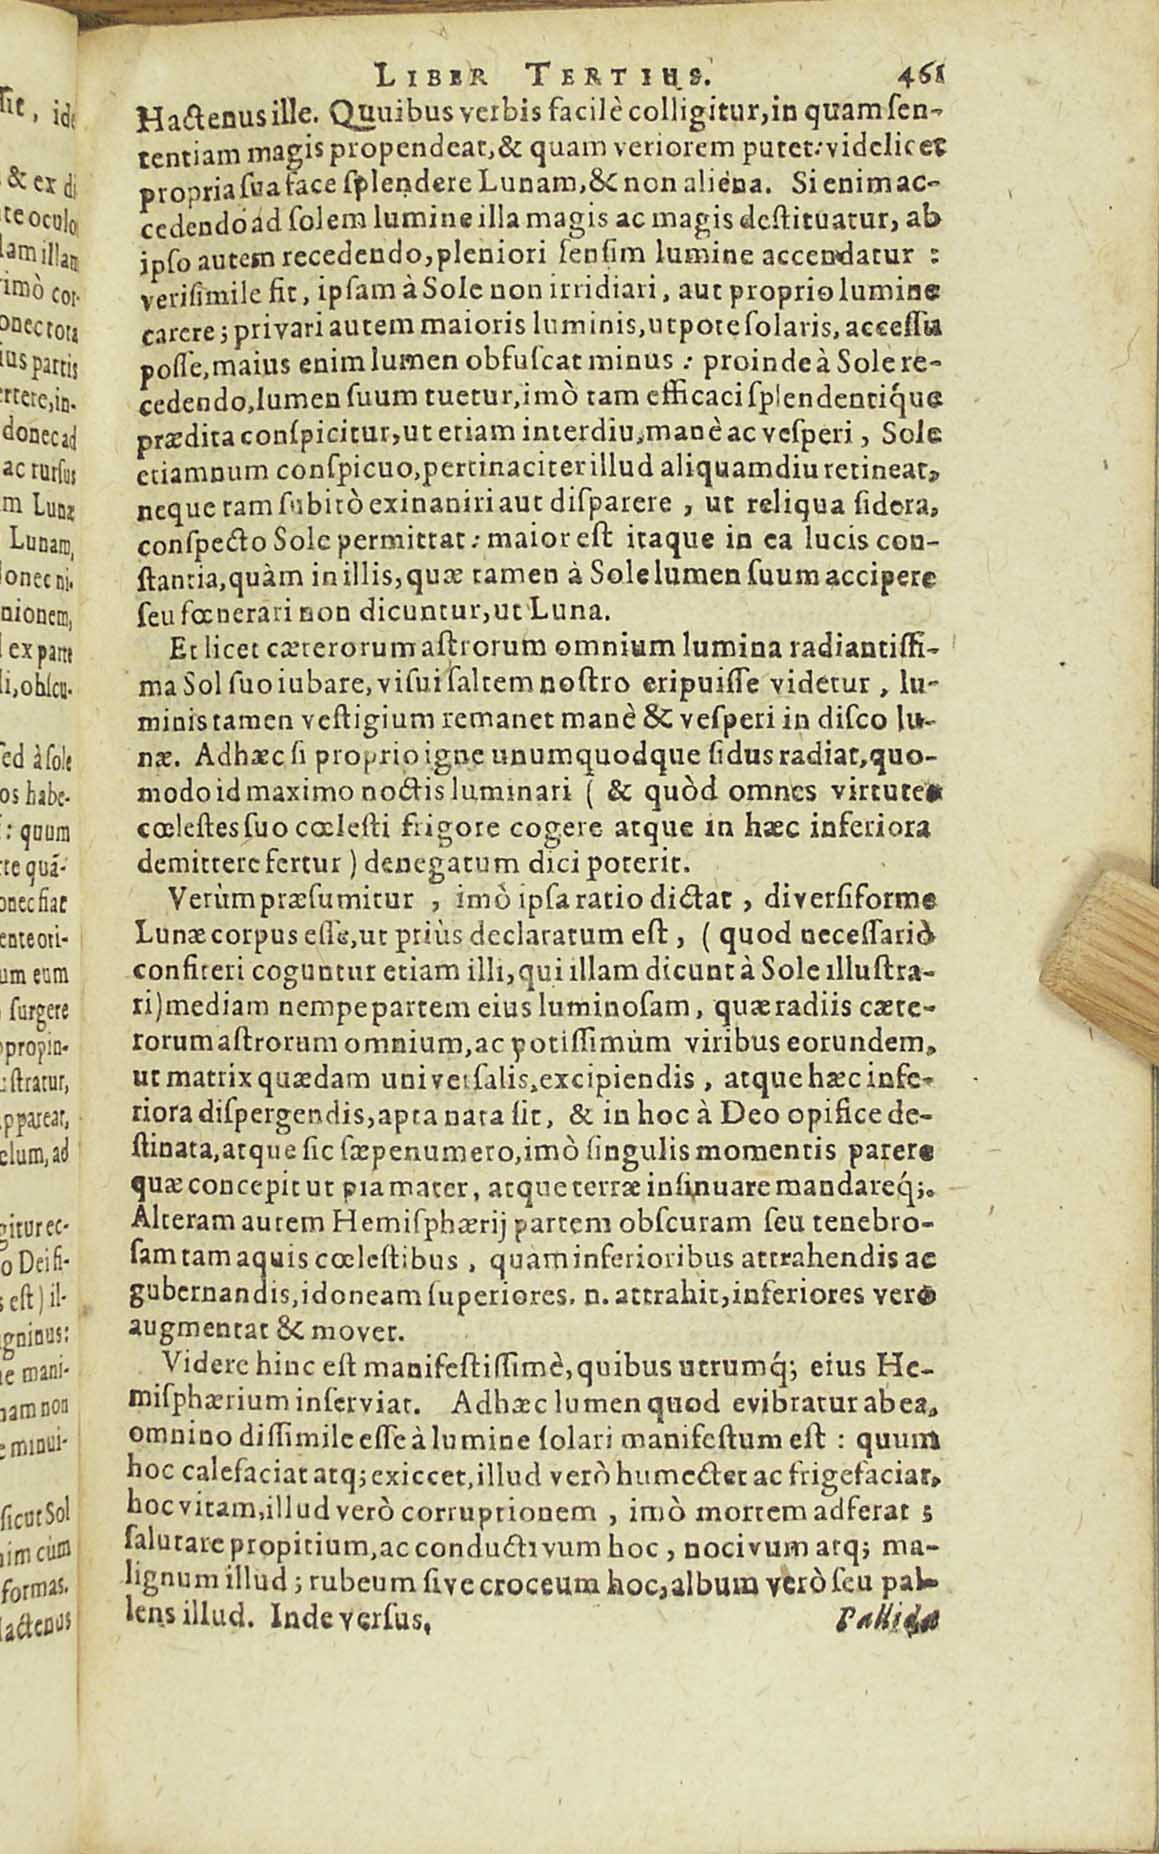 LIBER TERTIUS. 461
Hactenus ille. Quuibus verbis facilè colligitur, in quam ſen-
tentiam magis propendeat, & quam veriorem putet: videlicet
propria ſua face ſplendere Lunam, & non aliena. Si enim ac-
cedendo ad ſolem lumine illa magis ac magis deſtituatur, ab
ipſo autem recedendo, pleniori ſenſim lumine accendatur :
veriſimile ſit, ipſam à Sole non irridiari, aut proprio lumine
carere; privari autem maioris luminis, utpote ſolaris, acceſſu
poſſe, maius enim lumen obfuſcat minus : proinde à Sole re-
cedendo, lumen ſuum tuetur, imò tam efficaci ſplendentiq́ue
prædita conſpicitur, ut etiam interdiu, manè ac veſperi, Sole
etiamnum conſpicuo, pertinaciter illud aliquamdiu retineat,
neque tam ſubitò exinaniri aut diſparere, ut reliqua ſidera,
conſpecto Sole permittat: maior eſt itaque in ea lucis con-
ſtantia, quàm in illis, quæ tamen à Sole lumen ſuum accipere
ſeu fœnerari non dicuntur, ut Luna.
Et licet cæterorum aſtrorum omnium lumina radiantiſſi-
ma Sol ſuo iubare, viſui ſaltem noſtro eripuiſſe videtur, lu-
minis tamen veſtigium remanet manè & veſperi in diſco lu-
næ. Adhæc ſi proprio igne unumquodque ſidus radiat, quo-
modo id maximo noctis luminari ( & quòd omnes virtutes
cœleſtes ſuo cœleſti frigore cogere atque in hæc inferiora
demittere fertur ) denegatum dici poterit.
Verùm præſumitur, imò ipſa ratio dictat, diverſiforme
Lunæ corpus eſſe, ut priùs declaratum eſt, ( quod neceſſariò
confiteri coguntur etiam illi, qui illam dicunt à Sole illuſtra-
ri) mediam nempe partem eius luminoſam, quæ radiis cæte-
rorum aſtrorum omnium, ac potiſſimùm viribus eorundem,
ut matrix quædam univerſalis, excipiendis, atque hæc infe-
riora diſpergendis, apta nata ſit, & in hoc à Deo opifice de-
ſtinata, atque ſic ſæpenumero, imò ſingulis momentis parere
quæ concepit ut pia mater, atque terræ inſinuare mandareq́;.
Alteram autem Hemiſphærij partem obſcuram ſeu tenebro-
ſam tam aquis cœleſtibus, quàm inferioribus attrahendis ac
gubernandis, idoneam ſuperiores. n. attrahit, inferiores verò
augmentat & movet.
Videre hinc eſt manifeſtiſſimè, quibus utrumq́; eius He-
miſphærium inſerviat. Adhæc lumen quod evibratur ab ea,
omnino diſſimile eſſe à lumine ſolari manifeſtum eſt : quum
hoc calefaciat atq; exiccet, illud verò humectet ac frigefaciat,
hoc vitam, illud verò corruptionem, imò mortem adferat ;
ſalutare propitium, ac conductivum hoc, nocivum atq; ma-
lignum illud ; rubeum ſive croceum hoc, album verò ſeu pal-
lens illud. Inde verſus,
Pallida